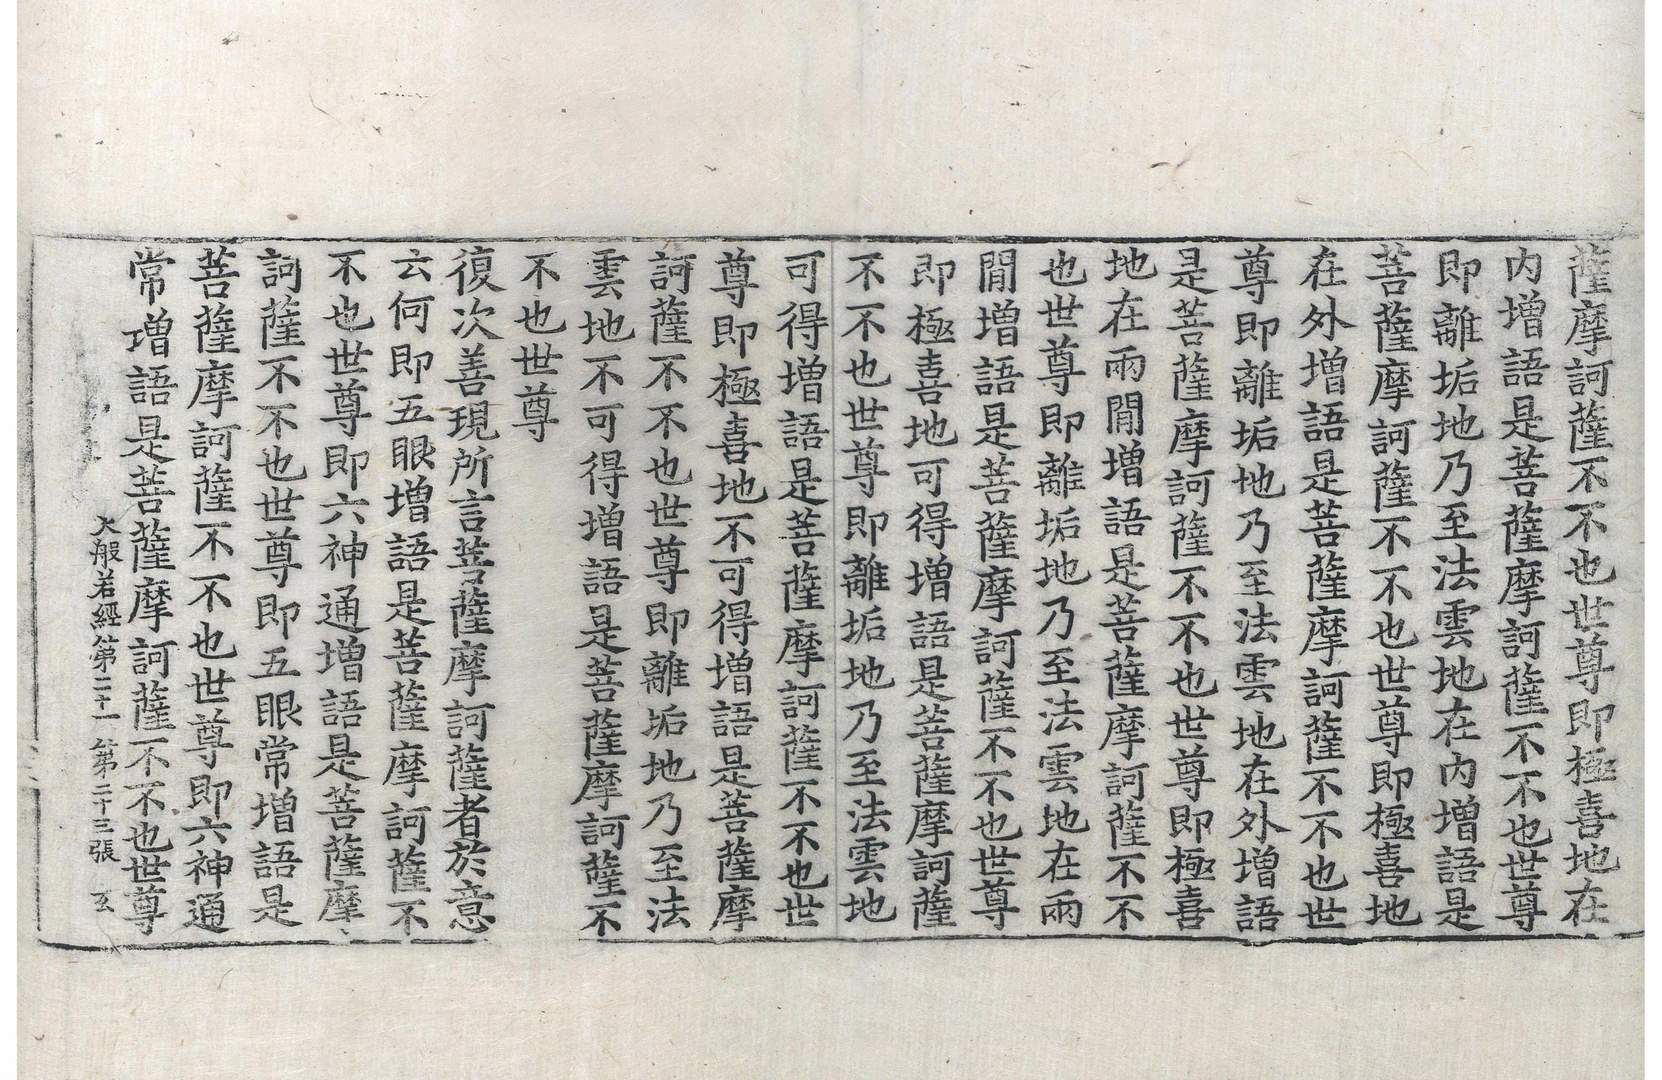 薩摩訶薩不不也世尊即極喜地在
内增語是菩薩摩訶薩不不也世尊
即離垢地乃至法雲地在內增語是
菩薩摩訶薩不不也世尊即極喜地
在外增語是菩薩摩訶薩不不也世
尊即離垢地乃至法雲地在外增語
是菩薩摩訶薩不不也世尊即極喜
地在兩閒增語是菩薩摩訶薩不不
也世尊即離垢地乃至法雲地在兩
閒增語是菩薩摩訶薩不不也世尊
即極喜地可得增語是菩薩摩訶薩
不不也世尊即離垢地乃至法雲地
可得增語是菩薩摩訶薩不不也世
尊即極喜地不可得增語是菩薩摩
訶薩不不也世尊即離垢地乃至法
雲地不可得增語是菩薩摩訶薩不
不也世尊
復次善現所言菩薩摩訶薩者於意
云何即五眼增語是菩薩摩訶薩不
不也世尊即六神通增語是菩薩摩
訶薩不不也世尊即五眼常增語是
菩薩摩訶薩不不也世尊即六神通
常增語是菩薩摩訶薩不不也世尊
大般若經第二十一 第二十三張 玄